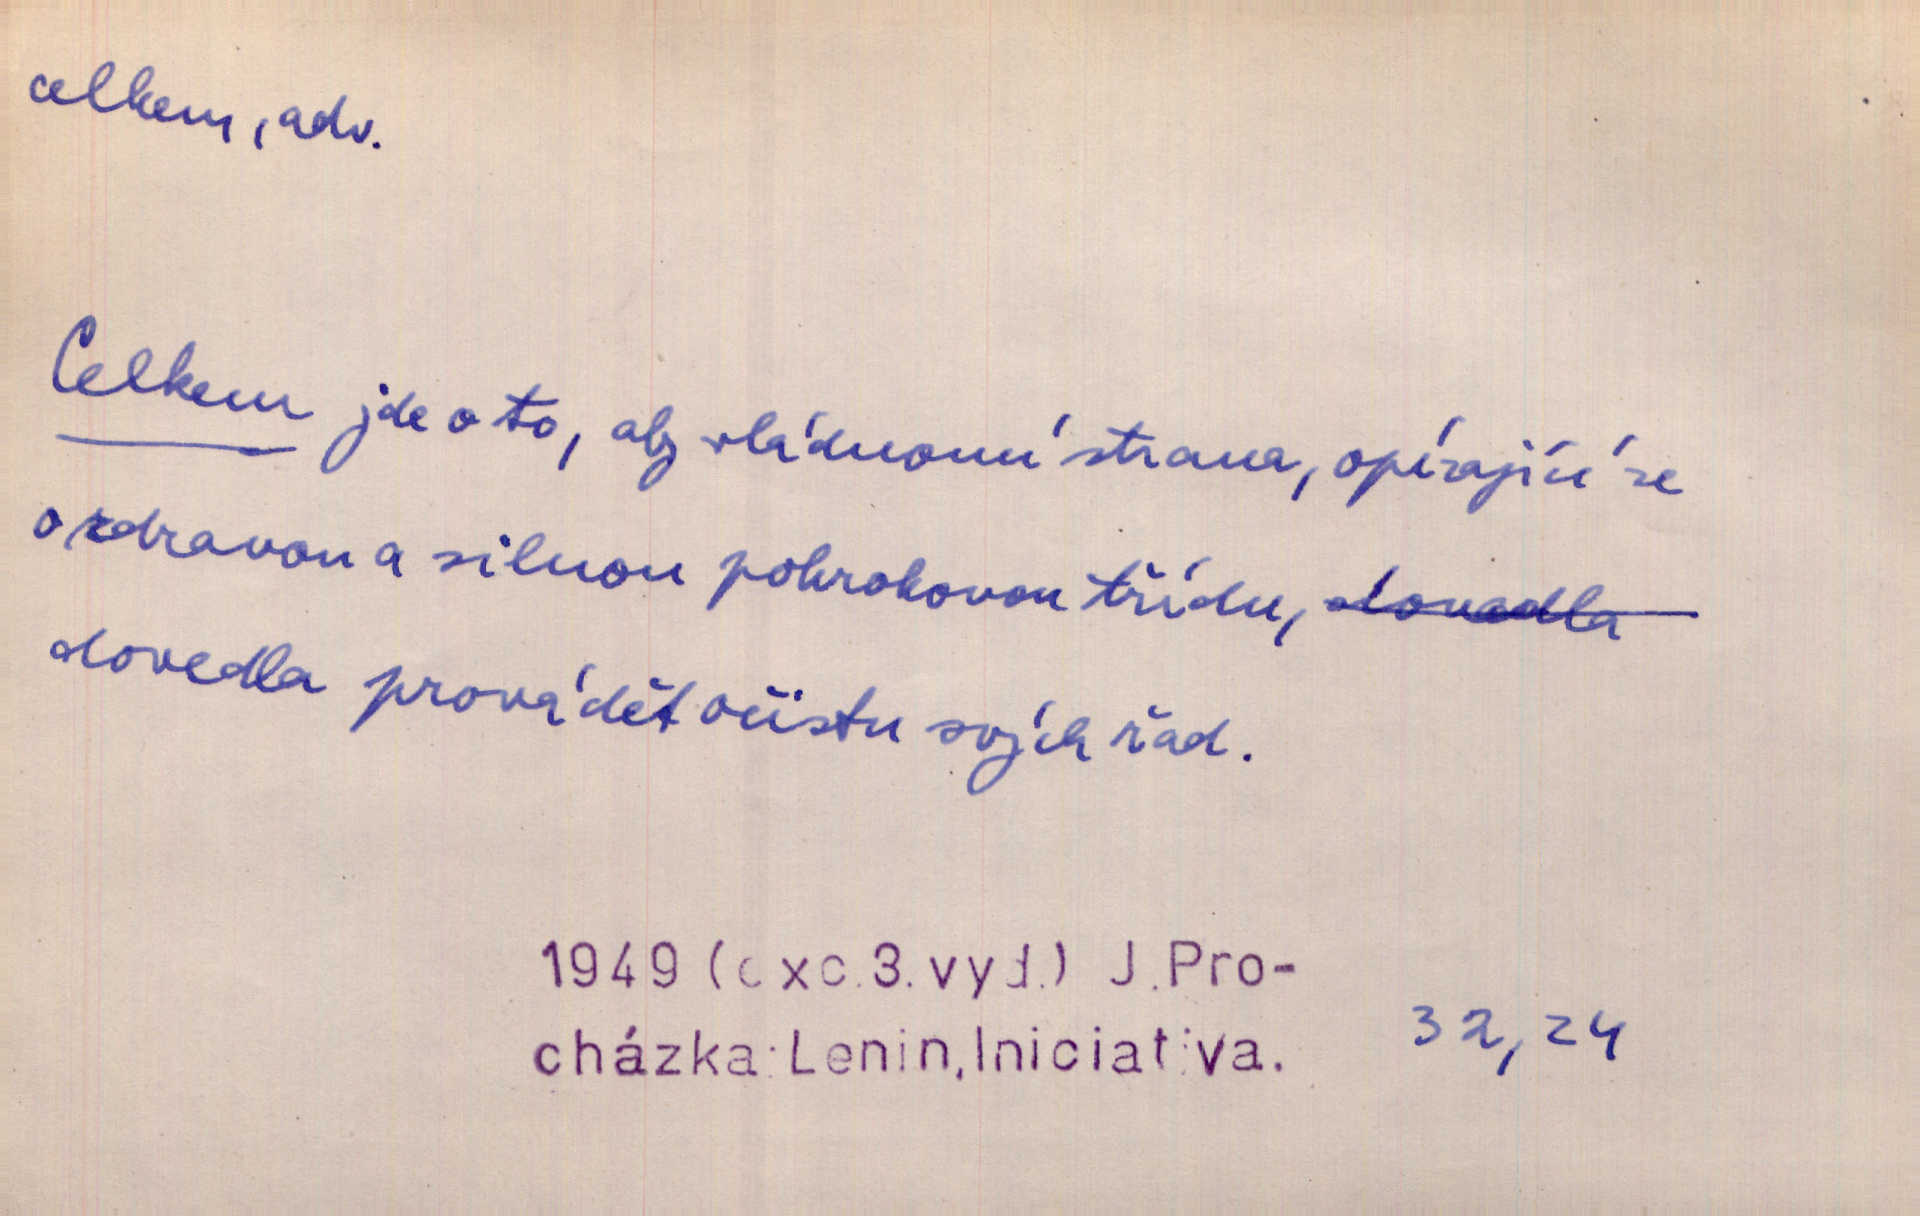 celkem, adv.
Celkem jde o to, aby vládnoucí strana, opírající se
o zdravou a silnou pokrokovou třídu, dovedla
dovedla provádět očistu svých řad.
1949 (exc. 3. vyd.) J. Pro-
cházka: Lenin, Iniciativa.
32, 24